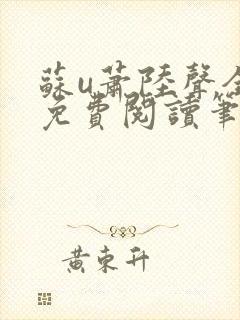 蘇u蕭陸聲全
免費閱讀筆
黃東升